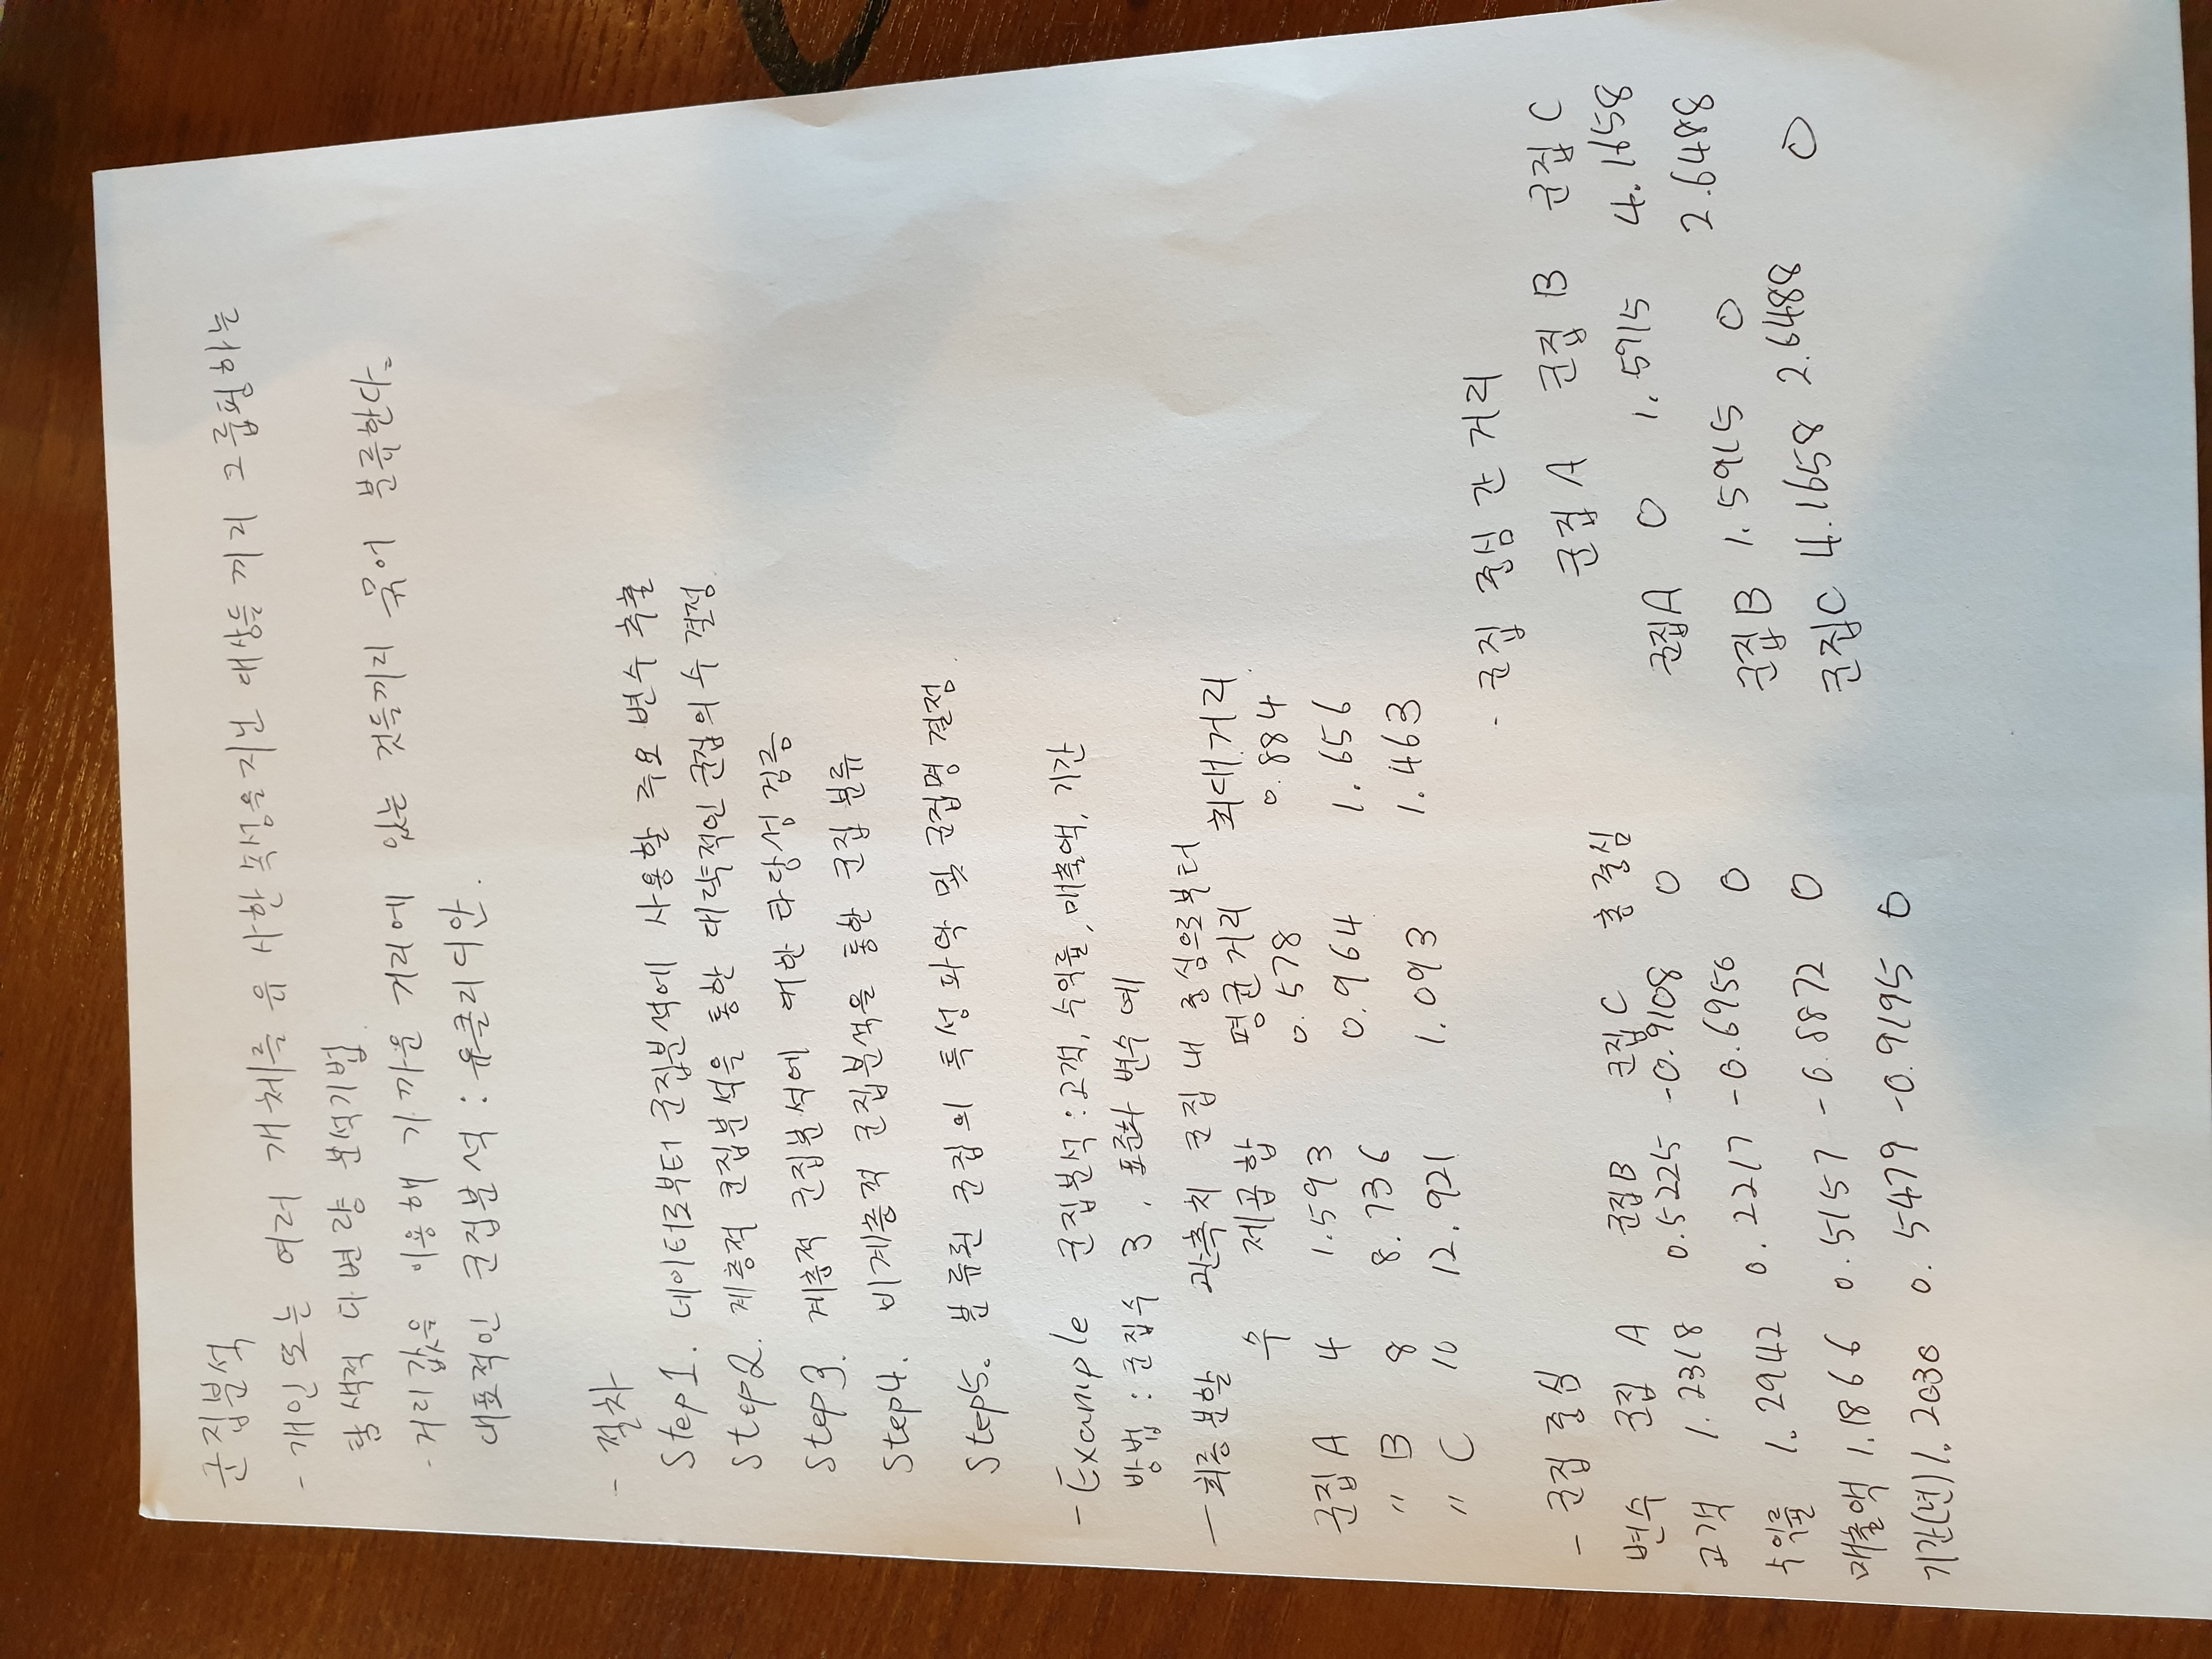 군집분석
- 개인 또는 여러 개체를 유사한 속성을 지닌 대상들 끼리 그룹핑하는
탐색적 다변량 분석기법.
- 거리값을 이용해 가까운 거리에 있는 것들끼리 묶어 분류한다.
대표적인 군집분석 : 유클리디안.
- 절차
Step1. 데이터로부터 군집분석에 사용할 주요 변수 추출
Step2. 계층적 군집분석을 통한 대략적인 군집의 수 결정
Step3. 계층적 군집분석에 대한 타당성 검증
Step4. 비계층적 군집분석을 통한 군집 분류
Step5. 분류된 군집의 특성 파악 및 군집명 결정.
- Example 군집분석 : 고객, 수익률, 매출액, 기간
방법 : 군집수 3, 표준화 변수 예
- 최종분할 관측치 군집 내 중심으로부터
수 제곱합 평균거리 최대거리
군집A 4 1.593 0.578 0.884
〃 B 8 8.736 0.964 1.656
〃 C 10 12.921 1.093 1.463
- 군집 중심
변수 군집 A 군집B 군집C 총 중심
고객 1.2318 0.5225 -0.9108 0
수익률 1.2942 0.2217 -0.6950 0
매출액 1.1866 0.5157 -0.8872 0
기간(년) 1.2030 0.5479 -0.9195 0
- 군집 중심 간 거리
군집 A 군집 B 군집 C
군집A 0 1.5915 4.1658
군집B 1.5915 0 2.6488
군집C 4.1658 2.6488 0